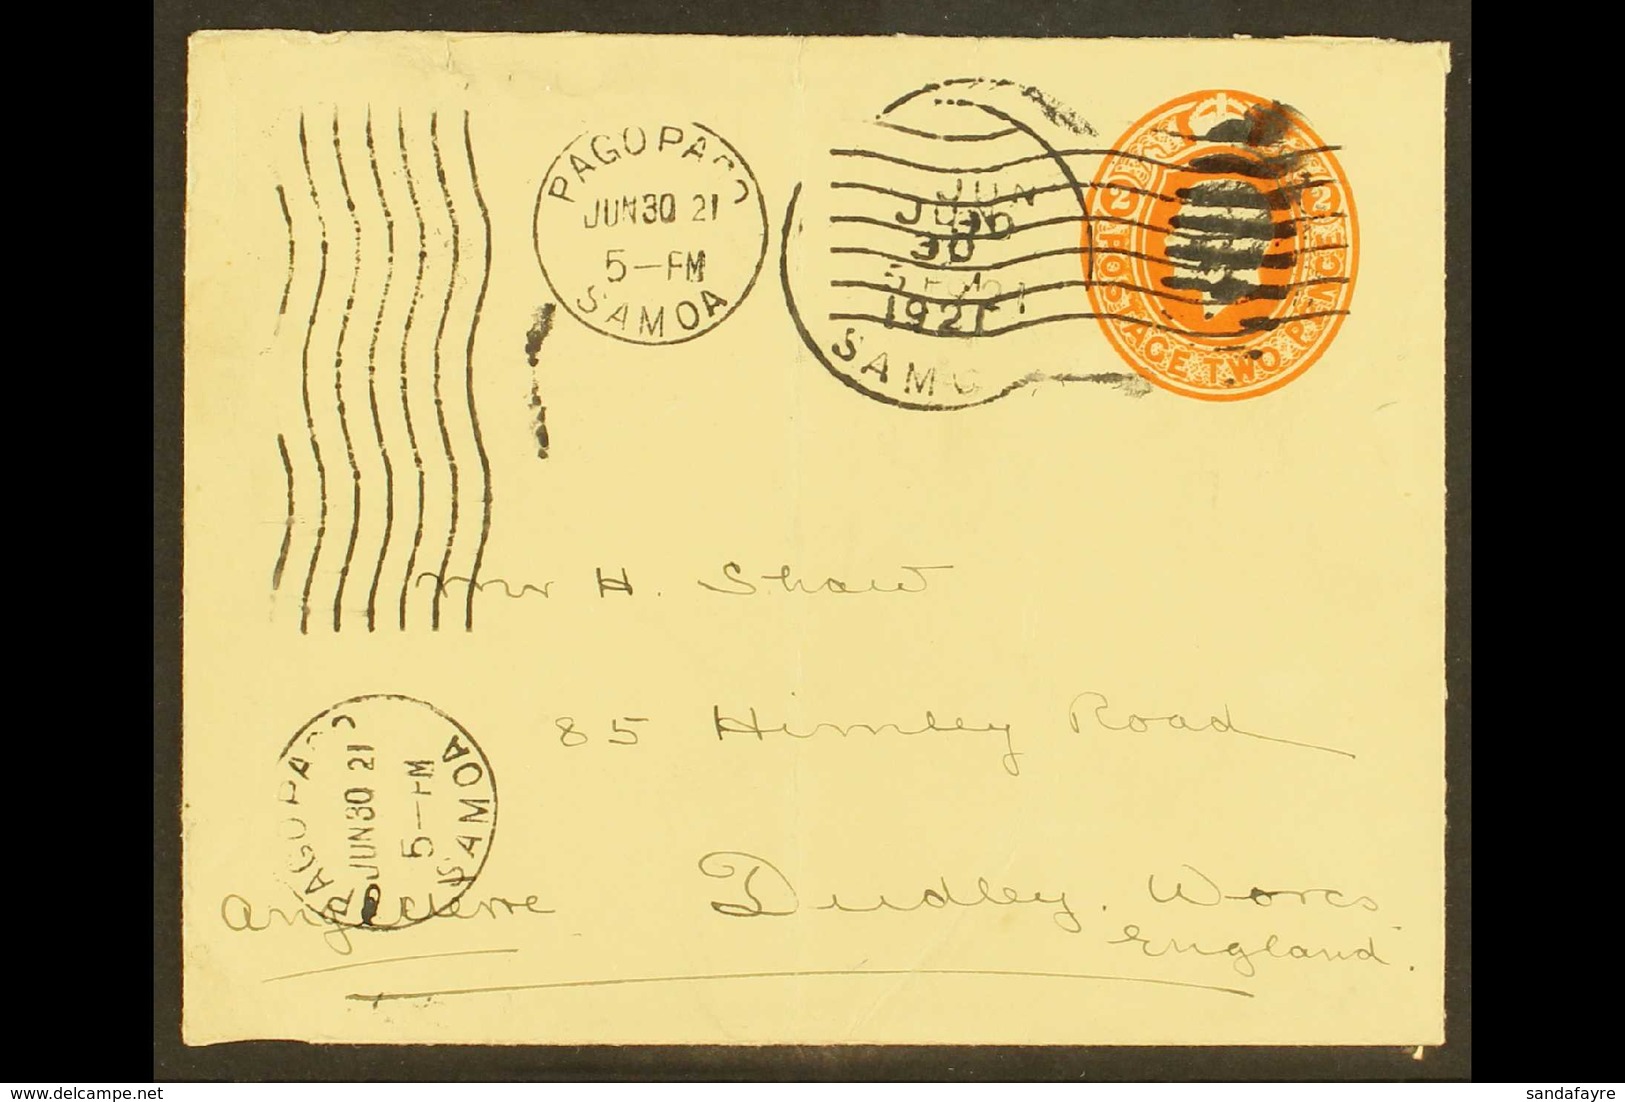 PAGO PAGO
JUN 30 21
5-PM
SAMOA
JUN
30
1921
JUN
30
SAMO
2 2
POSTAGE TWO PENCE
Mr H. Shaw
85 Himley Road
PAGO PAGO
JUN 30 21
5-PM
SAMOA
Angleterre
Dudley. Worcs
England.
sandafayre